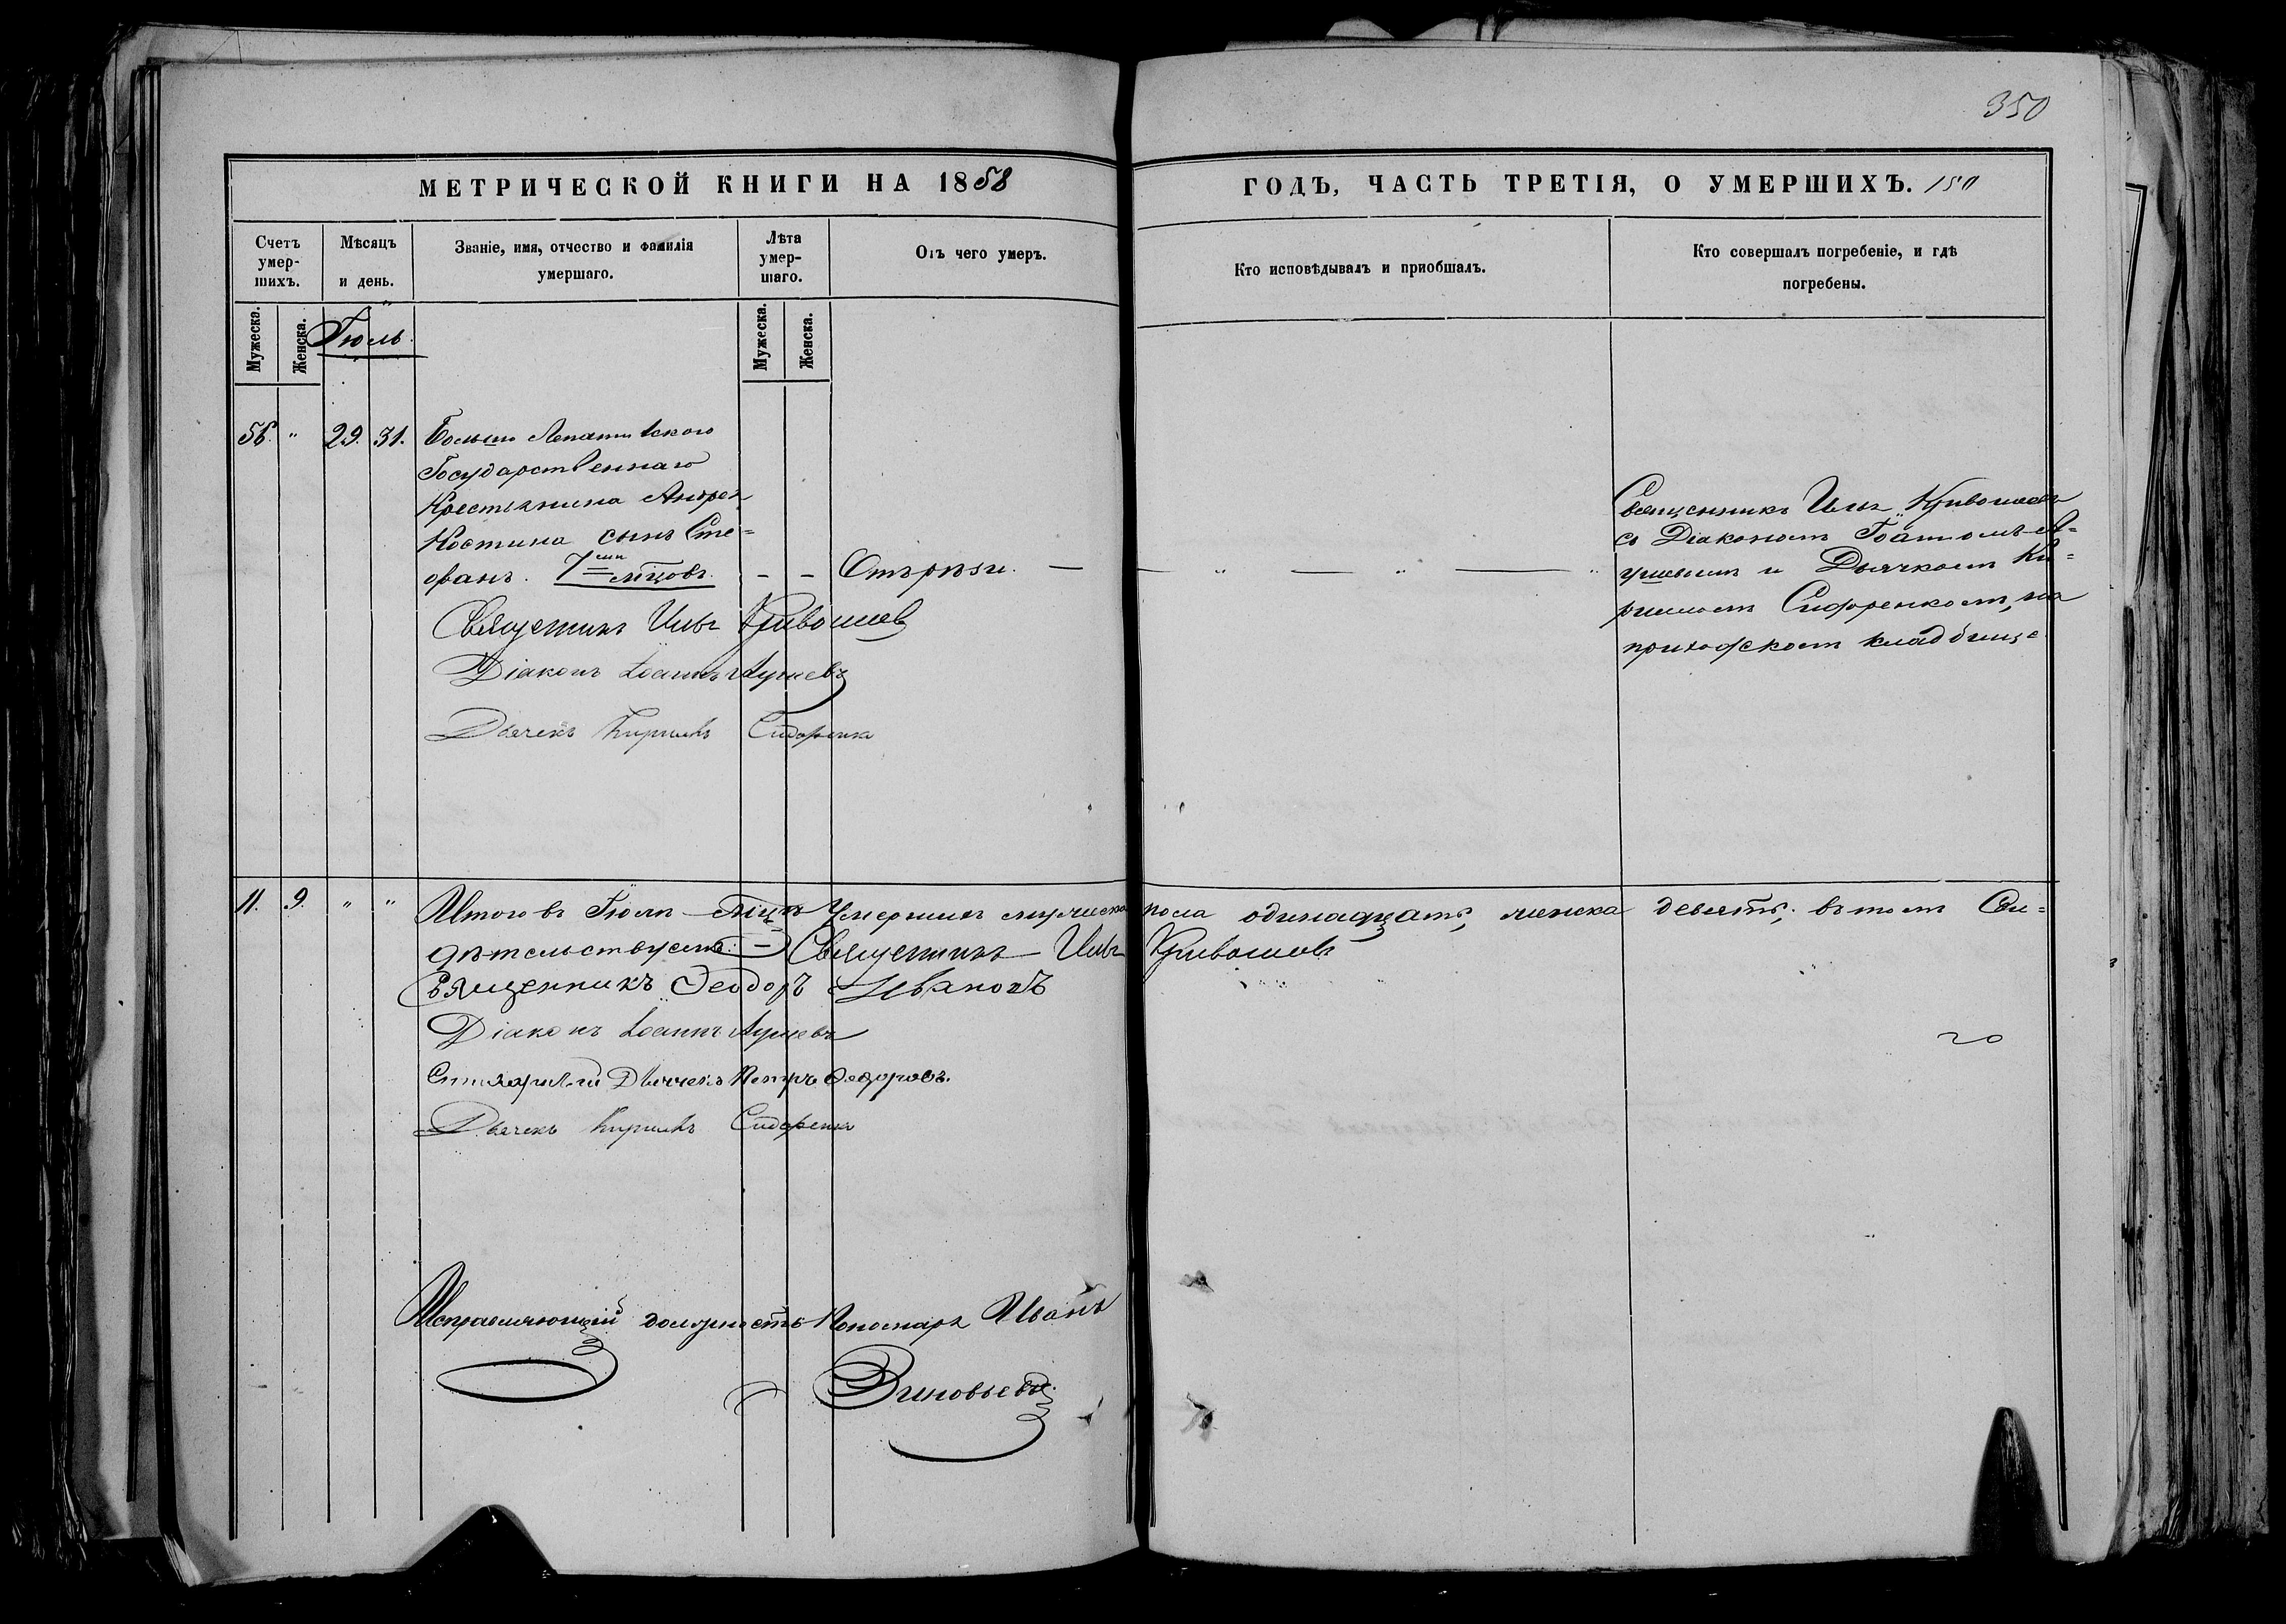 350
МЕТРИЧЕСКОЙ КНИГИ НА 1858
ГОДЪ, ЧАСТЬ ТРЕТІЯ, О УМЕРШИХЪ. 180
Счетъ умер-шихъ.
Мѣсяцъ и день.
Званіе, имя, отчество и фамилія умершаго.
Лѣта умер-шаго.
Отъ чего умеръ.
Кто исповѣдывалъ и приобщалъ.
Кто совершалъ погребеніе, и гдѣ погребены.
Мужеска.
Женска.
Мужеска.
Женска.
Іюль.
56. " 29. 31. Больше
Государственнаго
Крестьянина Андрея
Костина сынъ Сте=
фанъ. 7ми мѣсцовъ. - - Отъ рѣзи. — " — " — "
Священникъ Илья Кривошеевъ
Діаконъ Іоаннъ
Дьячекъ Кириллъ Сидоренко
Священникъ Илья Кривошеевъ
съ Діакономъ Іоанномъ
и Дьячкомъ Ки=
рилломъ Сидоренкомъ, на
приходскомъ кладбище
11. 9. " " Итого въ Іюлѣ мѣсцѣ Умершихъ мужеска пола одинадцать, женска девять; въ томъ Сви=
дѣтельствуемъ: — Священникъ Илья Кривошеевъ
Священникъ Ѳеодоръ Ивановъ
Діаконъ Іоаннъ
Стихарный Дьячекъ Петръ Ѳедоровъ.
Дьячекъ Кириллъ Сидоренко
Исправляющій должность Пономаря Иванъ
Зиновьевъ